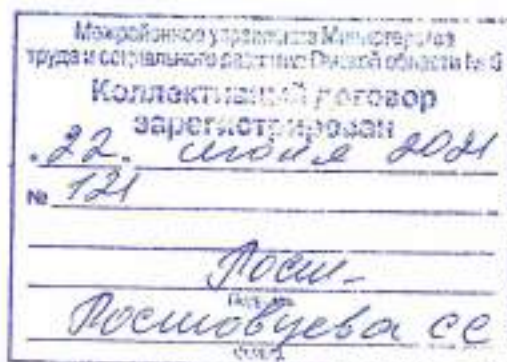 Межрайонное управление Министерства
труда и социального развития Омской области № 6
Коллективный договор
зарегистрирован
"22" июля 2021
№ 121
Рост-
Подпись
Ростовцева СС